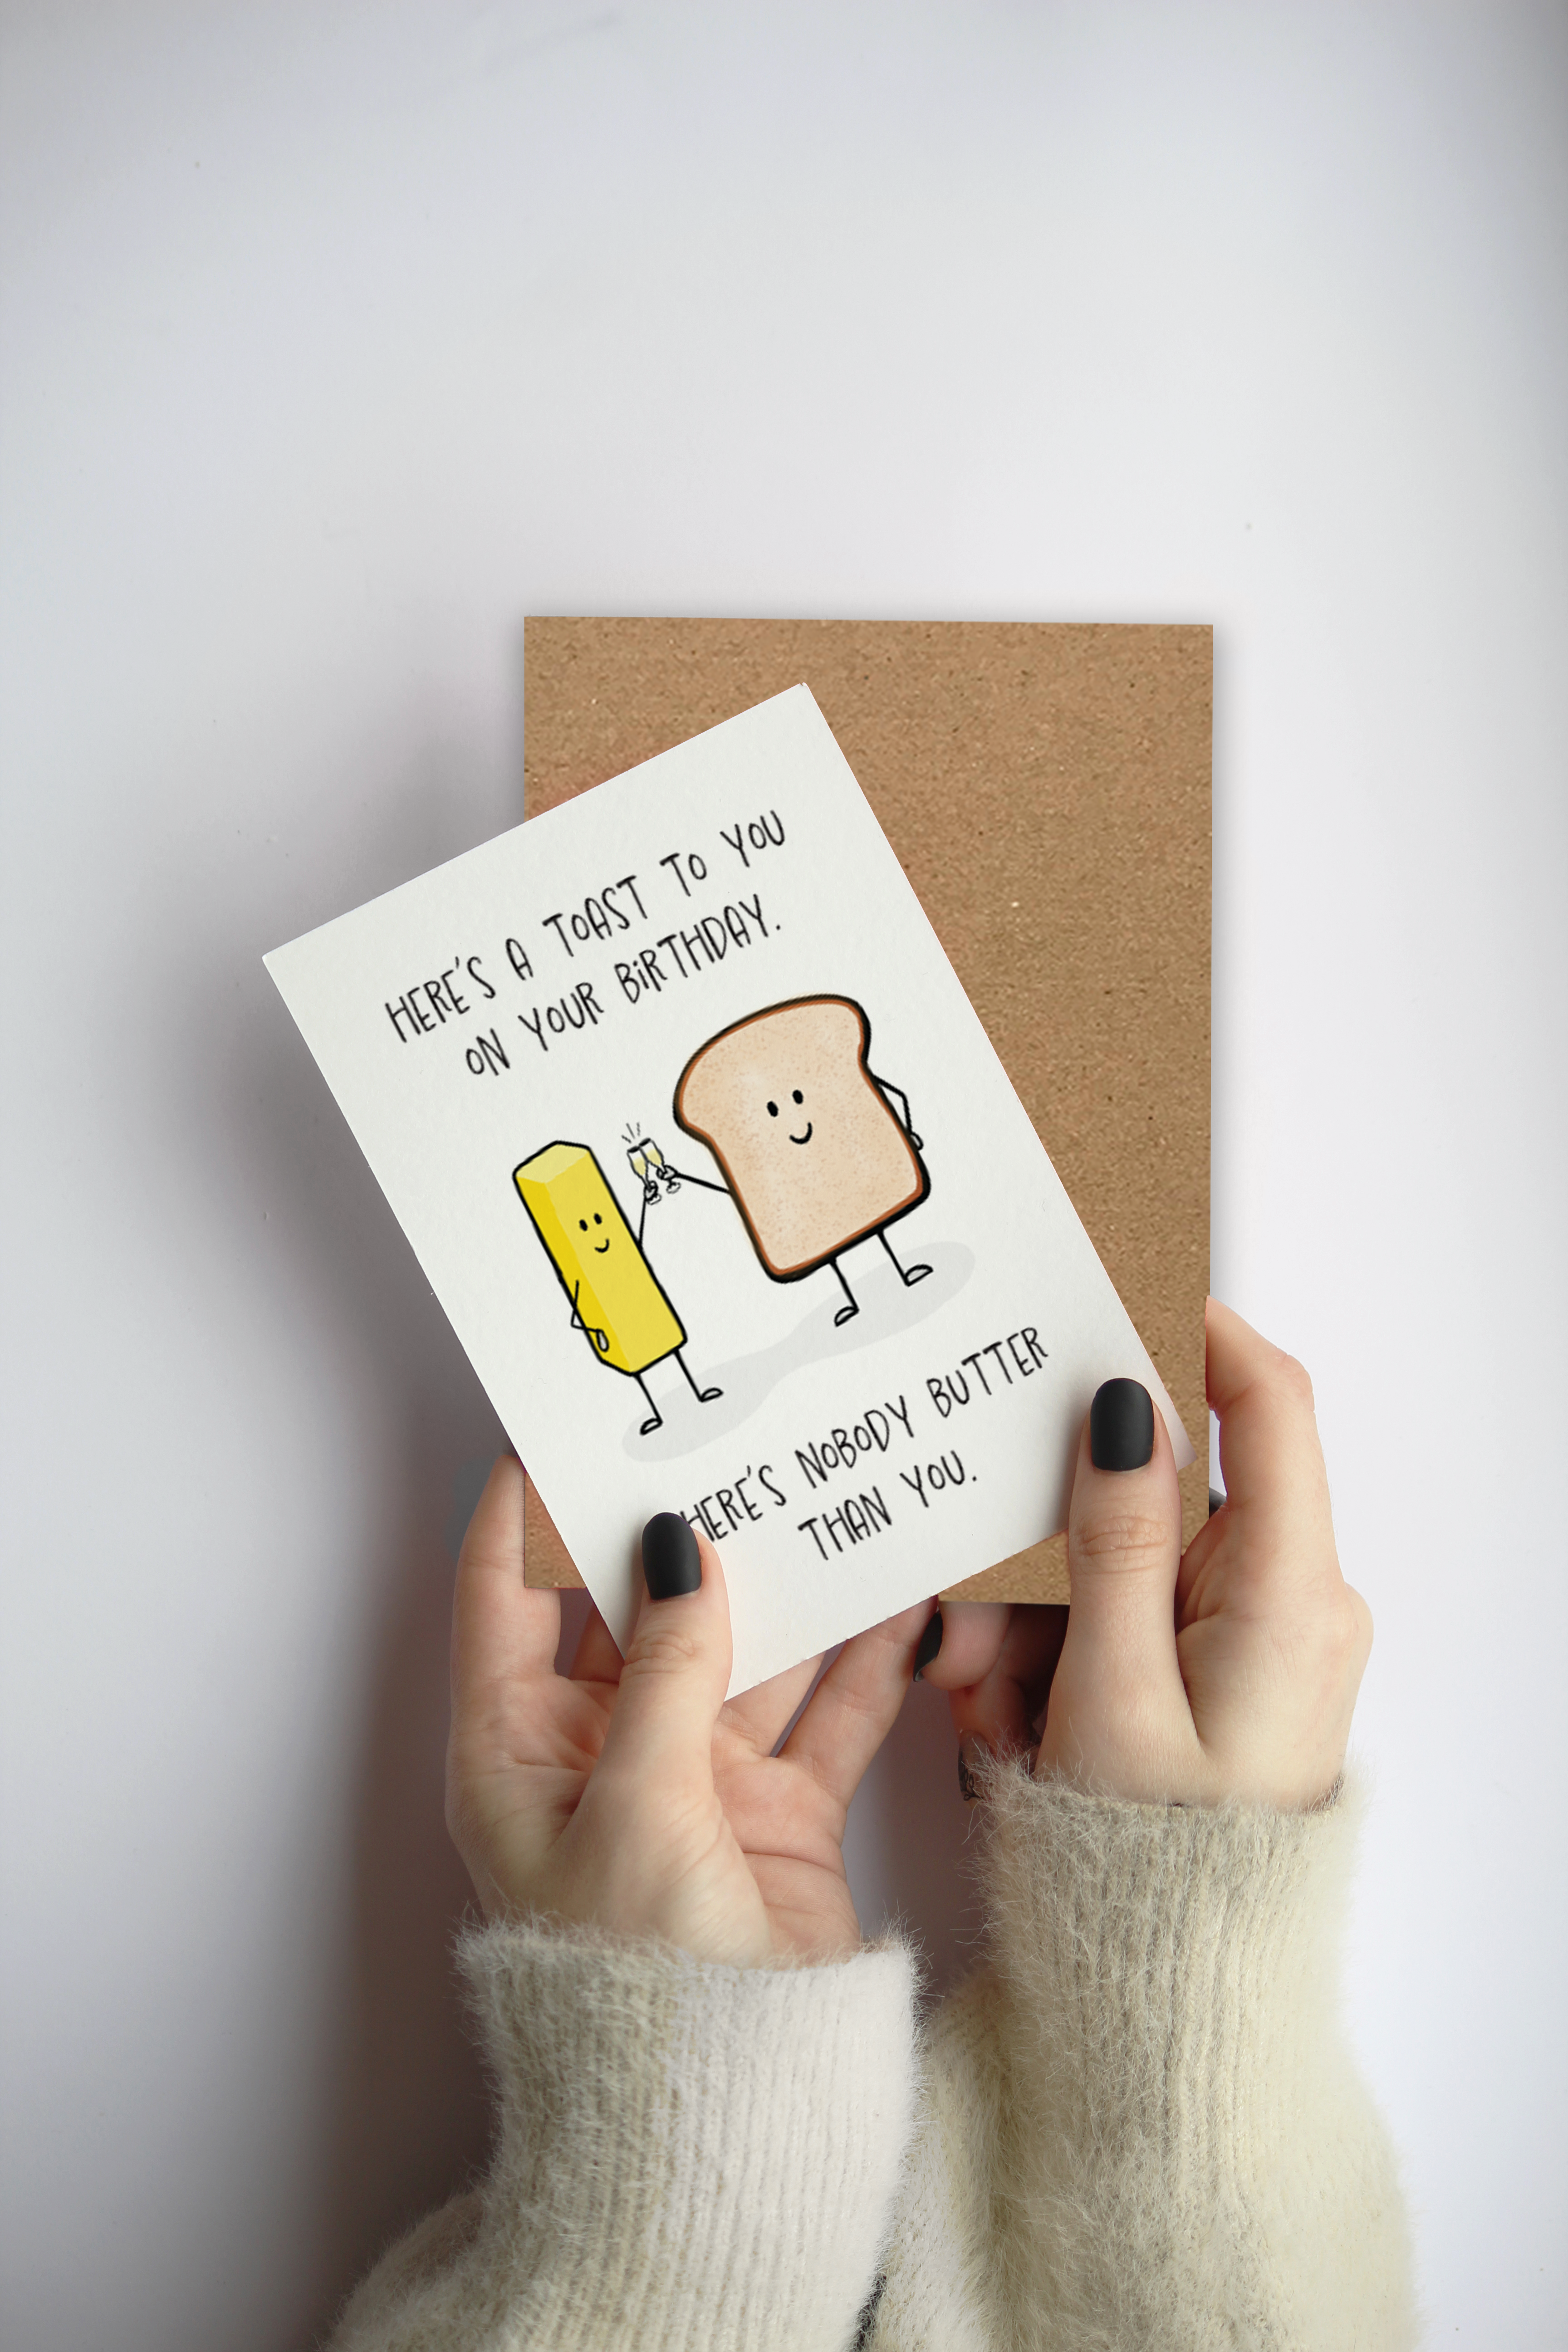 HERE'S A TOAST TO YOU
ON YOUR BIRTHDAY.
HERE'S NOBODY BUTTER
THAN YOU.